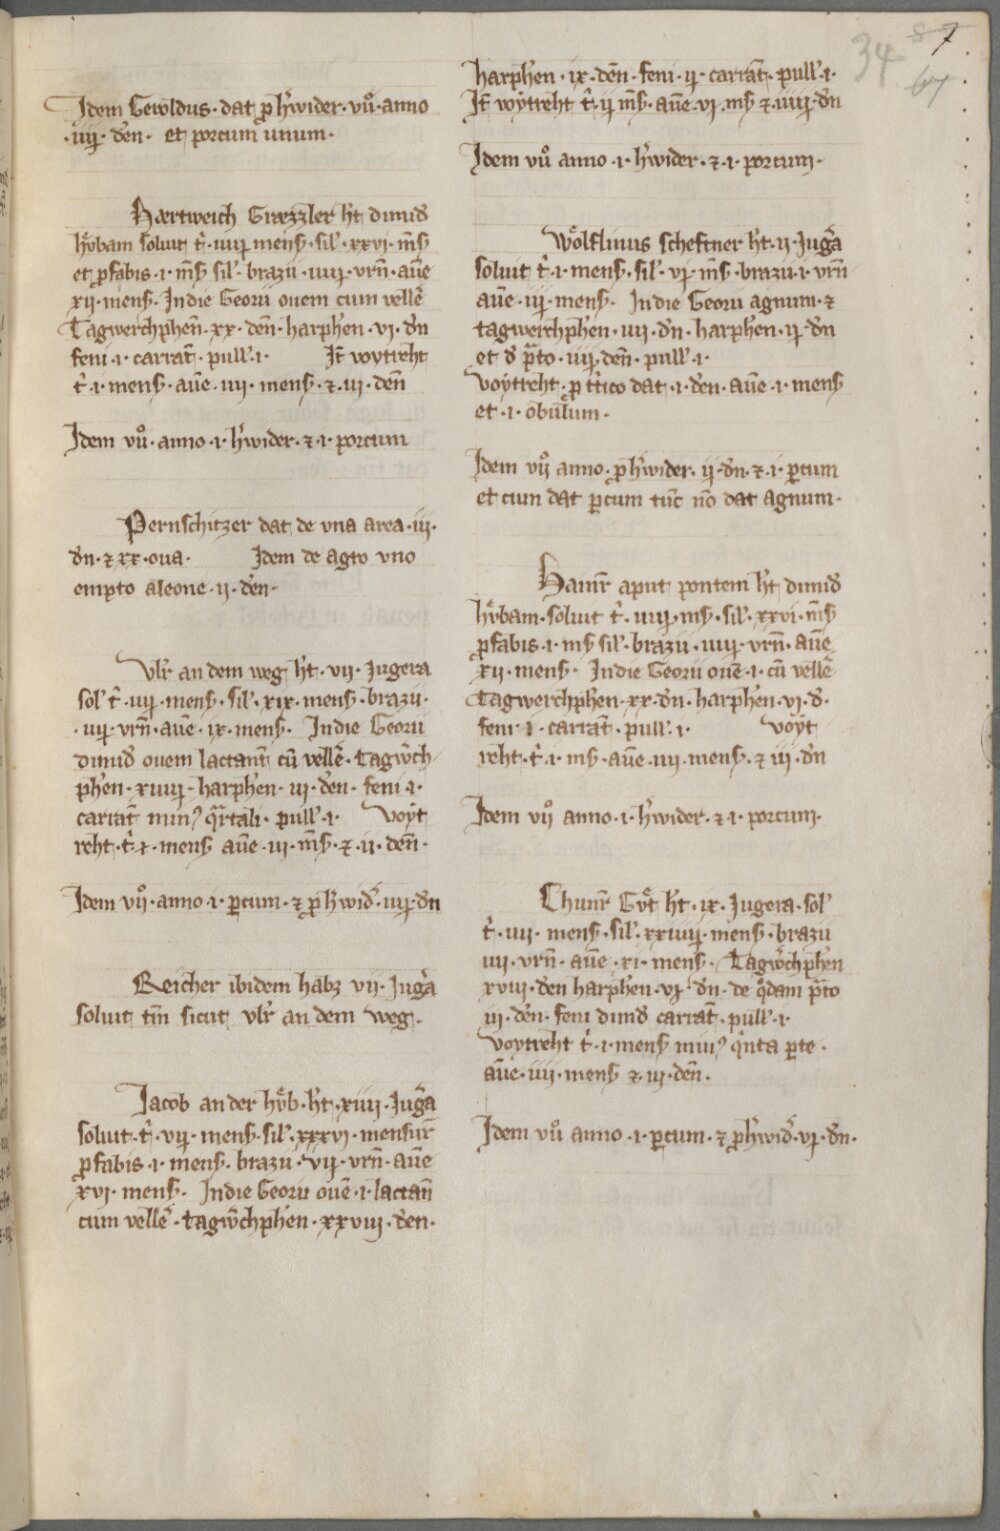 Idem Gewoldus · dat p h'wider · vnͦ · anno
· iiij · den̄ · et porcum unum ·
Hærtweich Græzzler h't dimid̄
hv̊bam soluit t̄ · iiij · mens̄ · sil' · xxvi · ms̄
et p fabis · i · ms̄ sil' · brazii · iiij · vrn̄ · aue̅
xij · mens̄ · In die Georii ouem cum velle̅
Tagwerchphen̄ · xx · den̄ · harphen̄ · vi · dn̄
feni · i · carrat̄ · pull' · i · It̄ voytreht
t̄ · i · mens̄ · aue̅ · iiii · mens̄ · ⁊ · iii · den̄
Idem vnͦ · anno · i · h'wider · ⁊ · i · porcum
Pernschitzer dat de vna area · iii ·
dn̄ · ⁊ xx · oua · Idem de agro vno
empto aleone · ii · den̄ ·
Vlr̄ an dem weg h't · vii · Jugera
sol' t̄ · iiij · mens̄ · sil' · xix · mens̄ · brazii ·
· iiij · vrn̄ · aue̅ · ix · mens̄ · In die Georii
dimid̄ ouem lactant̄ cu̅ velle̅ · Tagw̄ch
phen̄ · xiiij · harphen̄ · iii · den̄ · feni · i ·
carrat̄ min⁹ qr̄tali · pull' · i · Voyt
reht · t̄ · i · mens̄ aue̅ · iii · ms̄ · ⁊ · ii · den̄ ·
Idem vnͦ · anno · i · p̲cum · ⁊ p h'wid̄ · iiij · dn̄
Reicher ibidem habꝫ vii · Juḡa
soluit tm̄ sicut vlr̄ an dem weg ·
Jacob an der hv̊b · h't · xiiii · Juḡa
soluit · t̄ · vij · mens̄ · sil' · xxxvi · mensur̄
p fabis · i · mens̄ · brazii · vij · vrn̄ · aue̅
xvi · mens̄ · In die Georii oue̅ · i · lactan̄
cum velle̅ · tagw̄chphen̄ · xxviii · den̄ ·
harphen̄ · ix · den̄ · feni · ij · carrat̄ · pull' · i ·
It̄ voytreht t̄ · ij ms̄ · aue̅ · vi · ms̄ ⁊ · iiij · dn̄
Idem vnͦ anno · i · h'wider · ⁊ · i · porcum ·
Wo̊lflinus scheftner h't · ii · Juḡa
soluit t̄ · i · mens̄ · sil' · vj · ms̄ · brazii · i · vrn̄
aue̅ · iij · mens̄ · In die Georii agnum · ⁊
tagwerchphen̄ · iiii · dn̄ · harphen̄ · ij · dn̄
et d' p̄to · iiij · den̄ · pull' · i ·
voytreht · p t̄tico dat · i · den̄ · aue̅ · i · mens̄
et · i · obulum ·
Idem vnͦ anno · p h'wider · ij · dn̄ · ⁊ · i · p̲cum
et cum dat p̲cum tu̅c no̅ dat agnum ·
Hainr̄ aput pontem h't dimid̄
hv̊bam · soluit t̄ · iiij · ms̄ · sil' · xxvi · ms̄
p fabis · i · ms̄ sil' · brazii · iiij · vrn̄ · aue̅
xii · mens̄ · In die Georii oue̅ · i · cu̅ velle̅
Tagwerchphen · xx · dn̄ · harphen̄ · vj · d̄ ·
feni · i · carrat̄ · pull' · i · voyt
reht · t̄ · i · ms̄ · aue̅ · iiii · mens̄ · ⁊ iii · dn̄
Idem vnͦ anno · i · h'wider · ⁊ · i · porcum ·
Chunr̄ Gv̊t h't · ix · Jugera · sol'
t̄ · iii · mens̄ · sil' · xxiiij · mens̄ · brazii
iii · vrn̄ · aue̅ · xi · mens̄ · Tagw̄chphen̄
xviii · den̄ harphen̄ · vj · dn̄ · de qd̄am p̄to
iii · den̄ · feni dimid̄ carrat̄ · pull' · i ·
voytreht t̄ · i · mens̄ min⁹ qi̅nta p̲te ·
aue̅ · iiii · mens̄ ⁊ · iii · den̄ ·
Idem vnͦ anno · i · p̲cum · ⁊ p h'wid̄ · vj · dn̄ ·
34
67